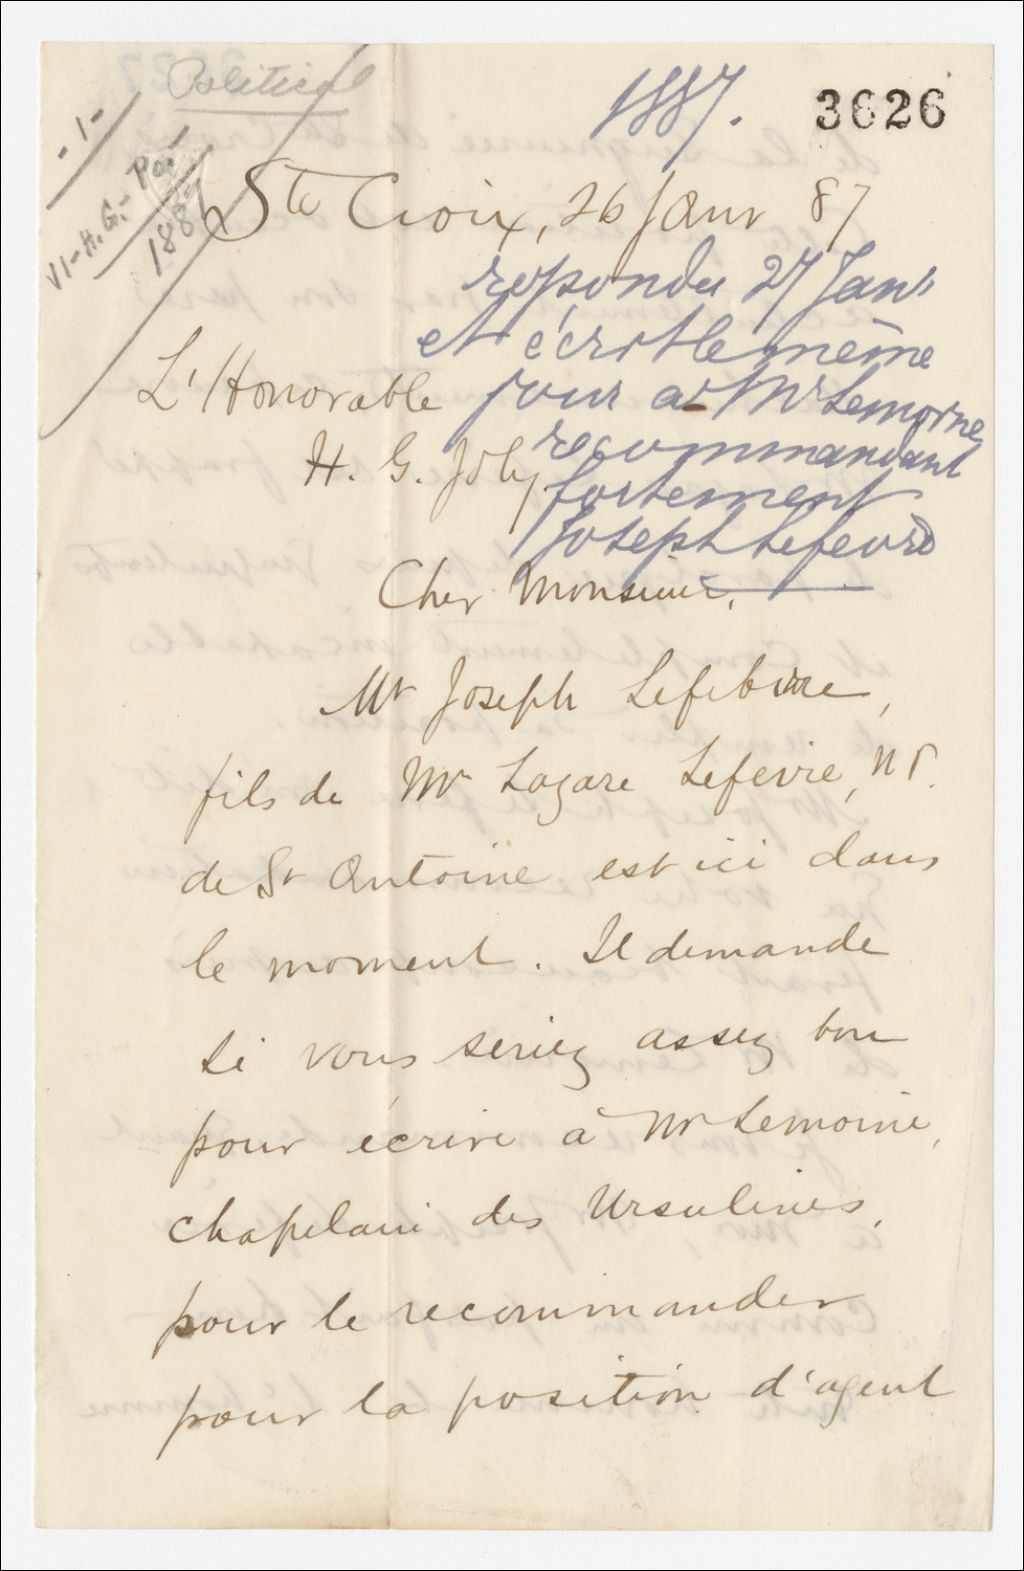 Political
1887.
3626
-1-
VI-H.G.-Pol
1887
Ste Croix, 26 Janr 87
repondu 27 Janr
et écrit le même
L'Honorable
jour a Mr Lemoine
H. G. Joly
recommandant
fortement
Joseph Lefevre
Cher Monsieur,
Mr Joseph Lefebvre,
fils de Mr Lazare Lefevre, N P.
de St Antoine est ici dans
le moment. Il demande
si vous seriez assez bon
pour écrire à Mr Lemoine,
chapelain des Ursulines,
pour le recommander
pour la position d'agent